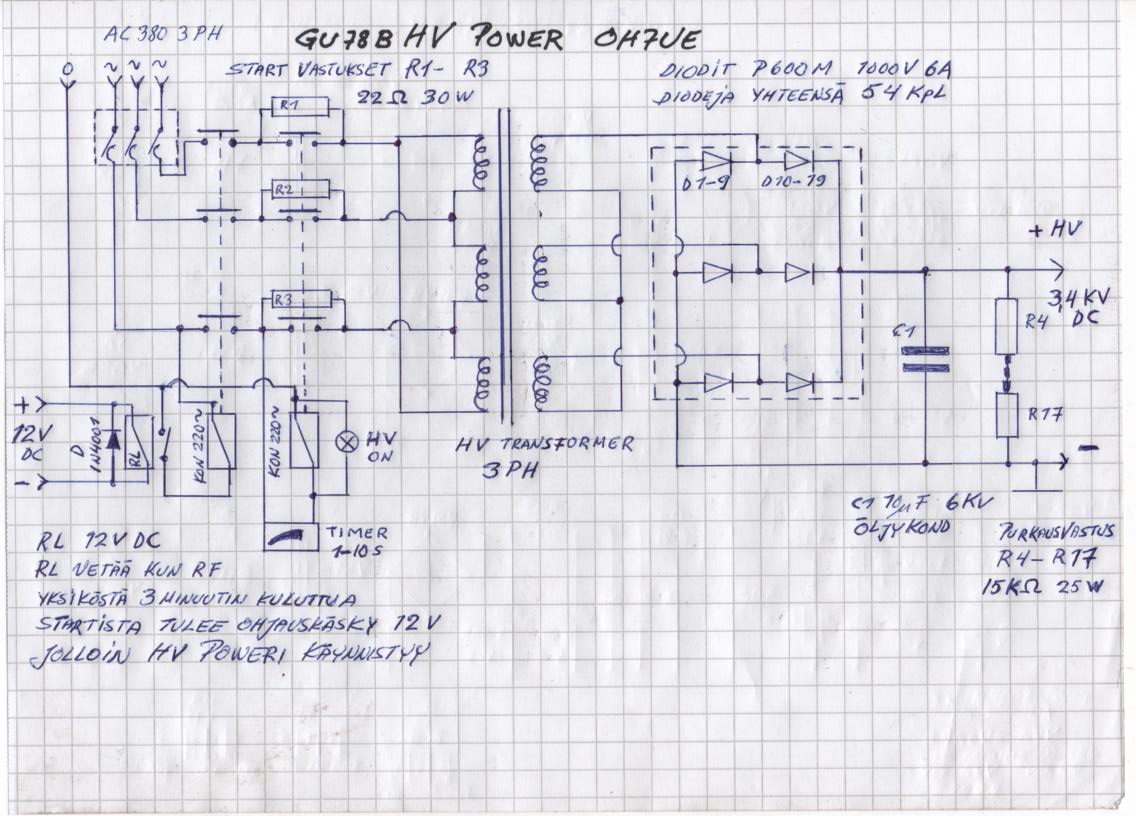 AC 380 3 PH
GU78B HV POWER OH7UE
0 ~ ~ ~
START VASTUKSET R1- R3
22Ω 30W
DIODIT P600M 1000V 6A
DIODEJA YHTEENSÄ 54 KPL
R1
R2
R3
D1-9
D10-19
+ HV
3,4 KV
DC
R4
C1
R17
-
+
12V
DC
-
D
1N4001
RL
KON 220~
KON 220~
HV
ON
HV TRANSFORMER
3 PH
TIMER
1-10S
C1 10µF 6KV
ÖLJYKOND
PURKAUSVASTUS
R4- R17
15KΩ 25W
RL 12V DC
RL VETÄÄ KUN RF
YKSIKÖSTÄ 3 MINUUTIN KULUTTUA
STARTISTA TULEE OHJAUSKÄSKY 12V
JOLLOIN HV POWERI KÄYNNISTYY